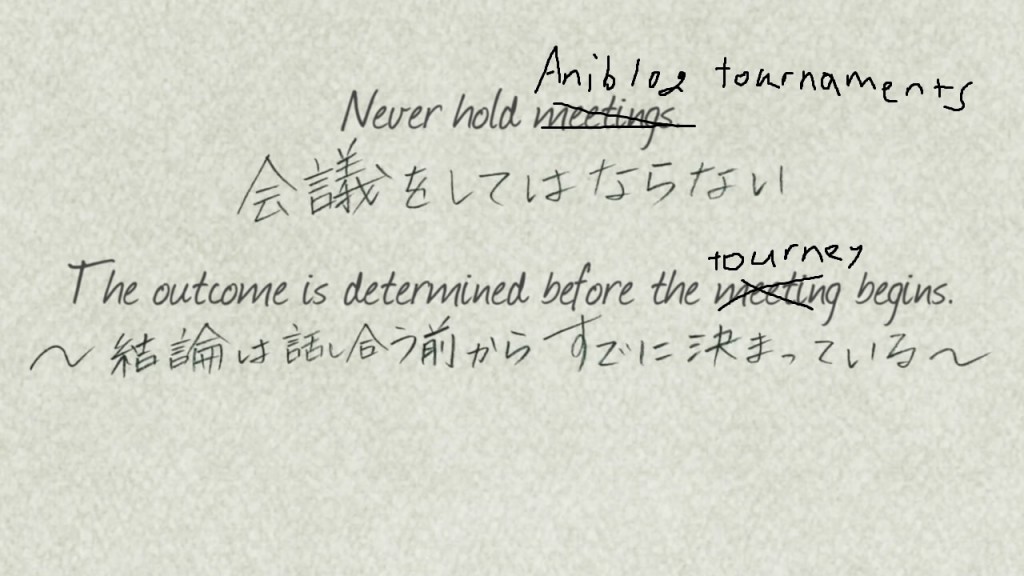 Aniblog tournaments
Never hold meetings.
会議をしてはならない
tourney
The outcome is determined before the meeting begins.
～結論は話し合う前からすでに決まっている～